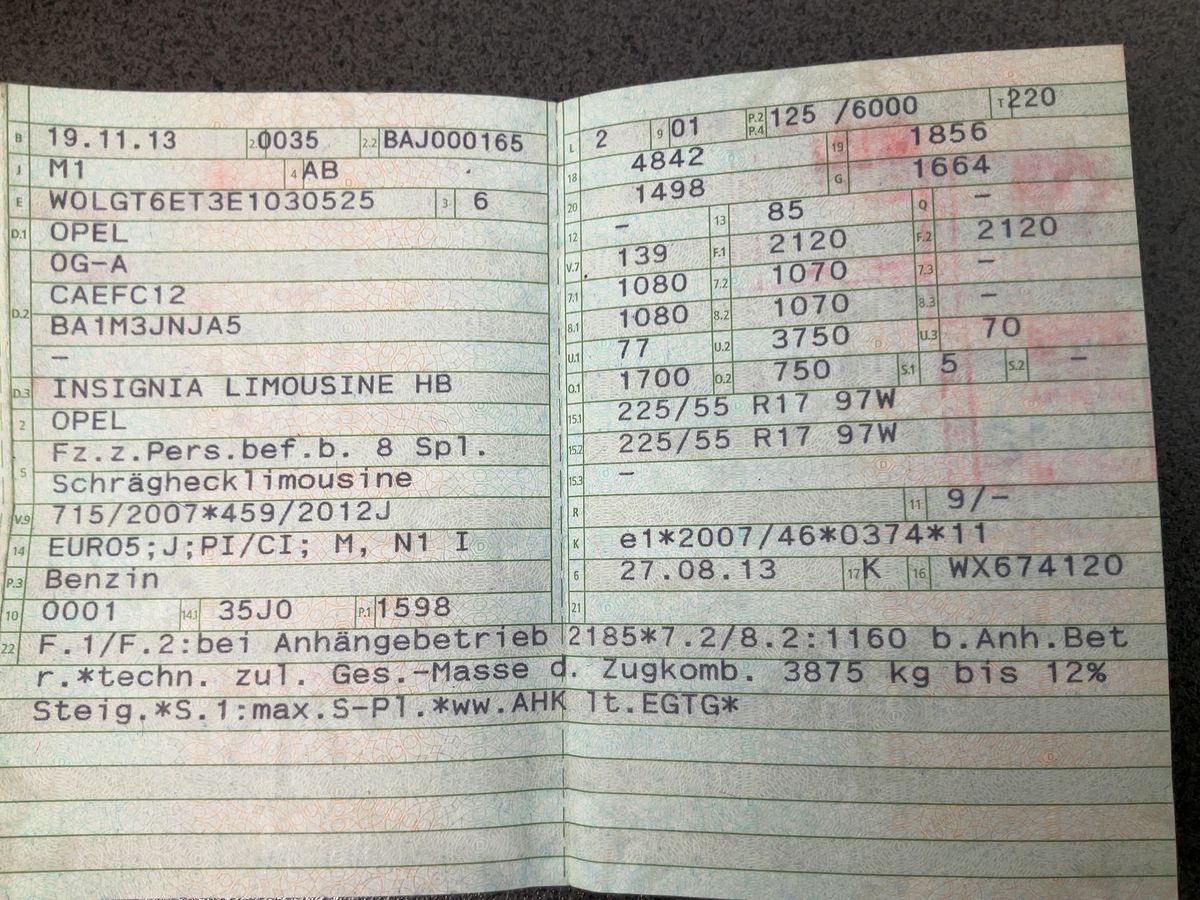 B 19.11.13 2.1 0035 2.2 BAJ000165
J M1 4 AB
E W0LGT6ET3E1030525 3 6
D.1 OPEL
OG-A
D.2 CAEFC12
BA1M3JNJA5
–
D.3 INSIGNIA LIMOUSINE HB
2 OPEL
5 Fz.z.Pers.bef.b. 8 Spl.
Schräghecklimousine
V.9 715/2007*459/2012J
14 EURO5;J;PI/CI; M, N1 I
P.3 Benzin
10 0001 14.1 35J0 P.1 1598
L 2 9 01 P.2 P.4 125 /6000 T 220
18 4842 19 1856
20 1498 G 1664
12 – 13 85 Q –
V.7 139 F.1 2120 F.2 2120
7.1 1080 7.2 1070 7.3 –
8.1 1080 8.2 1070 8.3 –
U.1 77 U.2 3750 U.3 70
O.1 1700 O.2 750 S.1 5 S.2 –
15.1 225/55 R17 97W
15.2 225/55 R17 97W
15.3 –
R 11 9/–
K e1*2007/46*0374*11
6 27.08.13 17 K 16 WX674120
21
22 F.1/F.2:bei Anhängebetrieb 2185*7.2/8.2:1160 b.Anh.Bet
r.*techn. zul. Ges.-Masse d. Zugkomb. 3875 kg bis 12%
Steig.*S.1:max.S-Pl.*ww.AHK lt.EGTG*